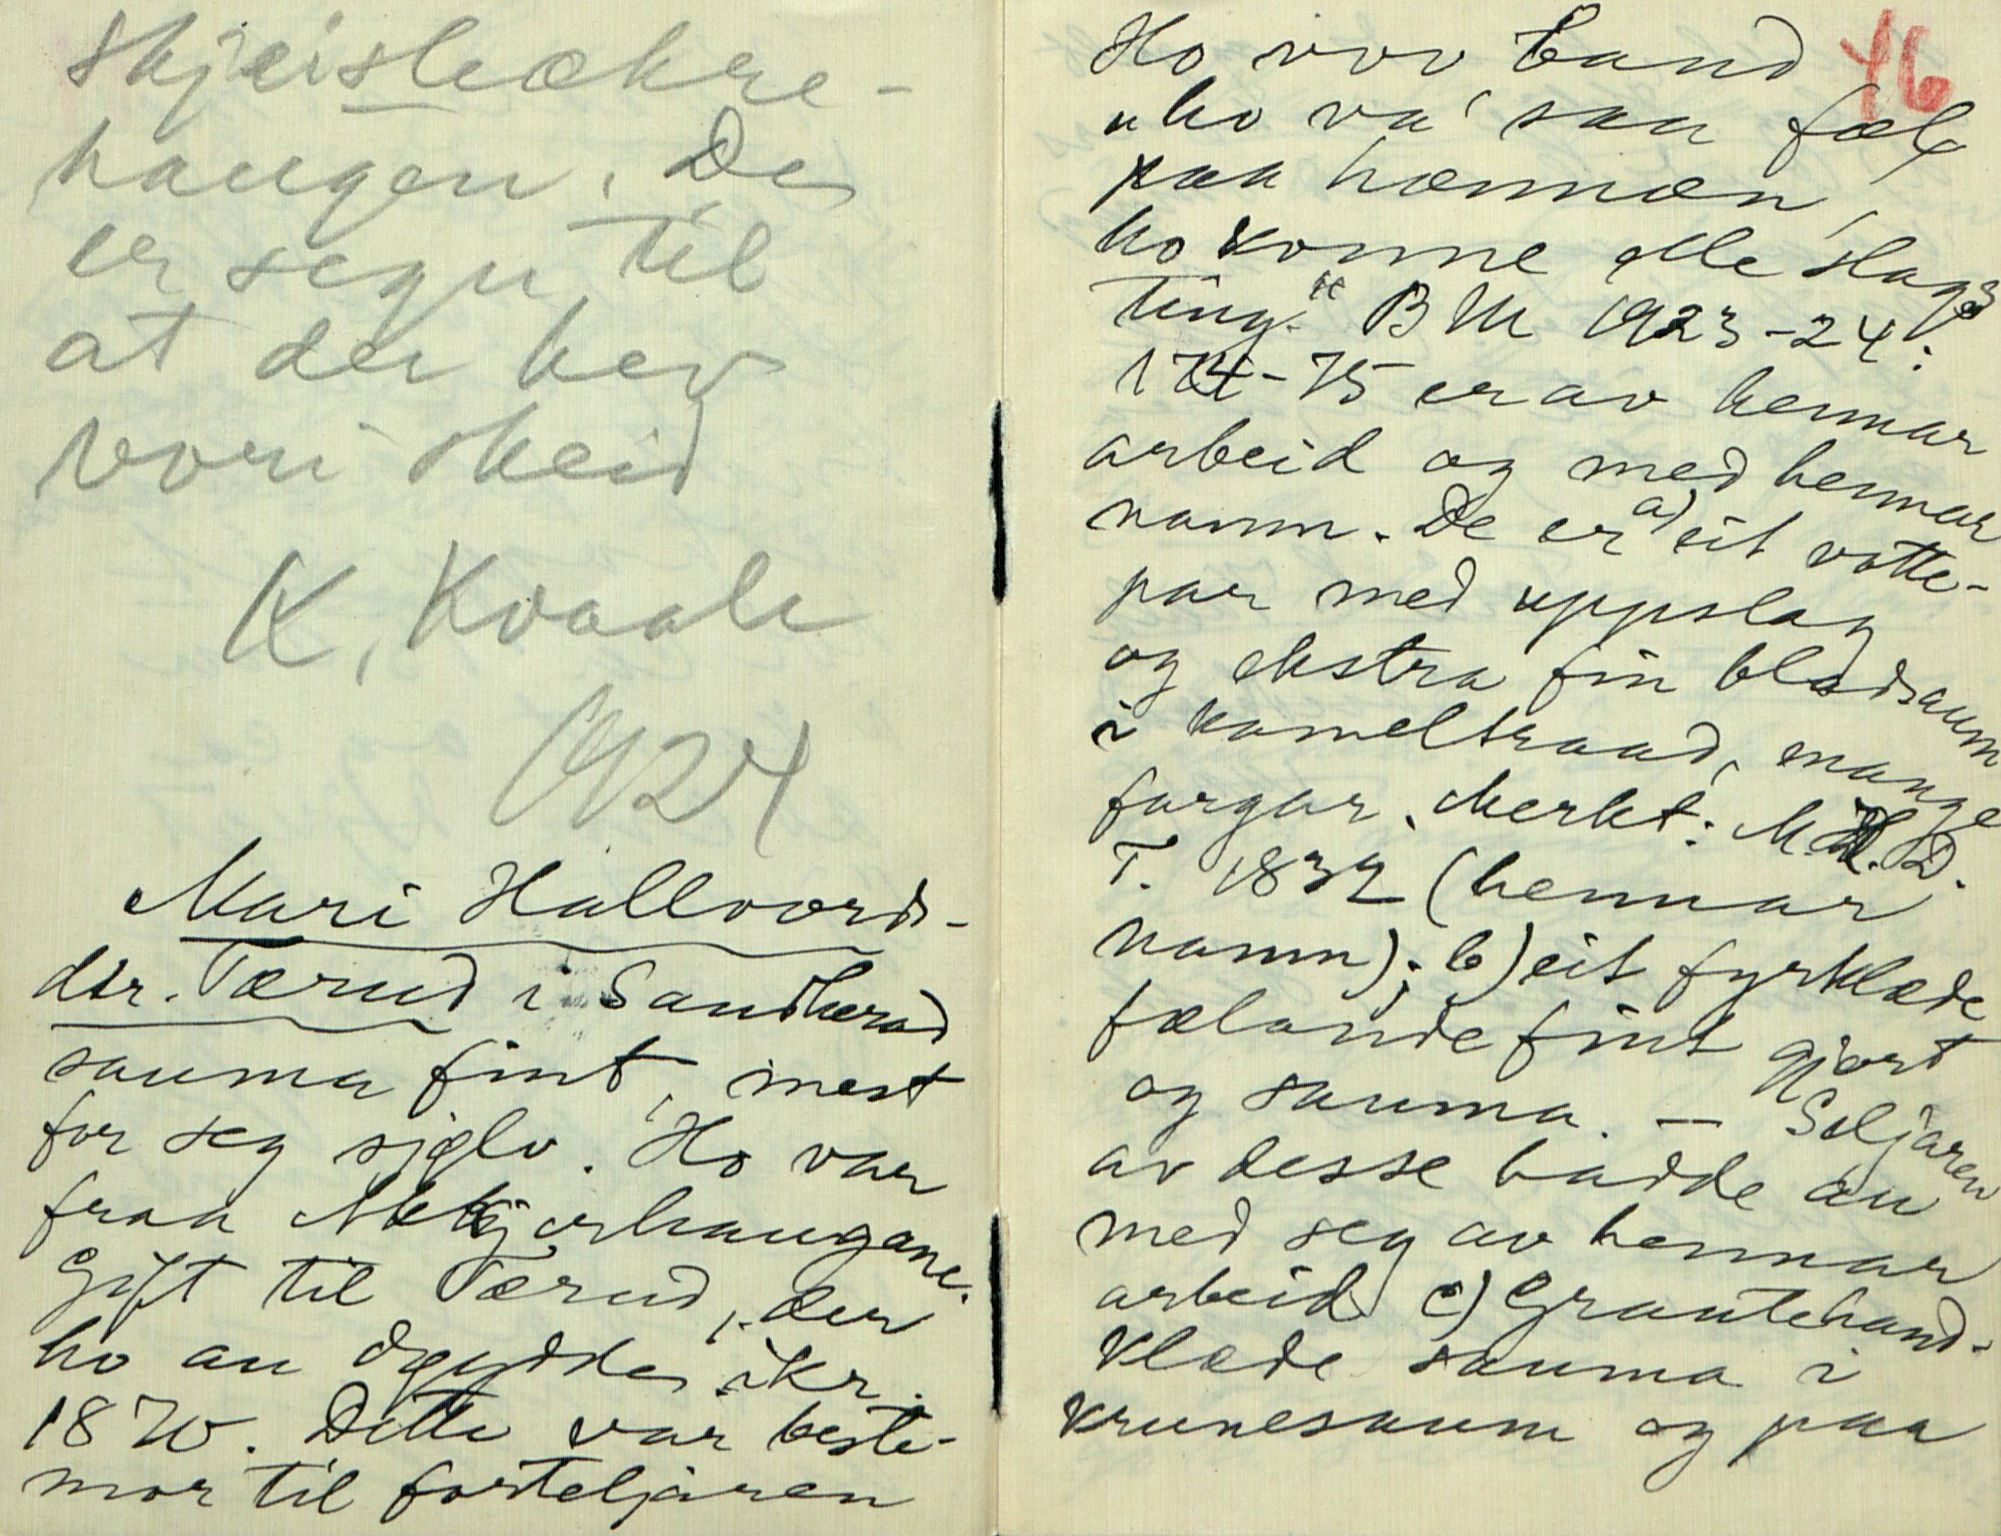 Skjeisleækre-
haugen. De
er segn til
at der hev
vori skeid
K. Kvaale
1924
Mari Hallvords-
dtr. Tærud i Sandherad
sauma fint, mest
for seg sjølv. Ho var
fraa
Gift til Tærud, der
ho au døydde ikr.
1870. Dette var beste-
mor til forteljaren
46
Ho vov band
"ho va' saa fæl
paa hænnæn,
ho konne alle slags
ting." BM 1923-24:
174-75 er av hennar
arbeid og med hennar
namn. De er a) eit votte-
par med uppslag
og ekstra fin bladsaum
i kameltraad, mange
fargar. Merkt: M.H.D.
T. 1832 (hennar
namn); b) eit fyrklæde
fælande fint gjort
og sauma. — Seljaren
av desse hadde au
med seg av hennar
arbeid c) Grautehand-
klæde sauma i
krunesaum og paa